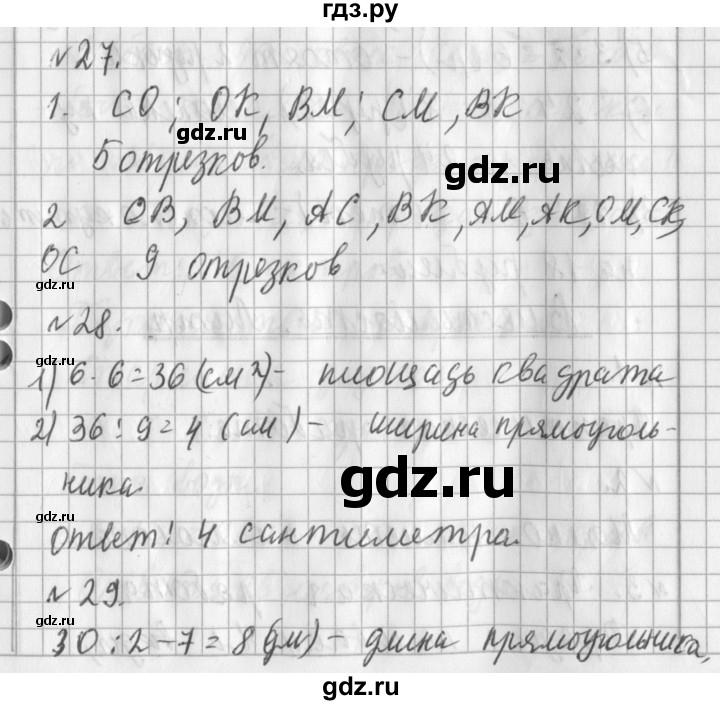 гдз.ру
№27.
1. СО; ОК, ВМ; СМ, ВК
gdz.ru
5 отрезков.
gdz.ru
2 ОВ, ВМ, АС, ВК, АМ, АК, ОМ, СК,
ОС 9 отрезков
gdz.ru
gdz.ru
№28.
1) 6·6=36 (см²)- площадь квадрата
gdz.ru
2) 36:9=4 (см)- ширина прямоуголь-
ника.
gdz.ru
gdz.ru
Ответ! 4 сантиметра.
№29.
30:2-7=8(дм)- длина прямоугольника,
gdz.ru
gdz.ru